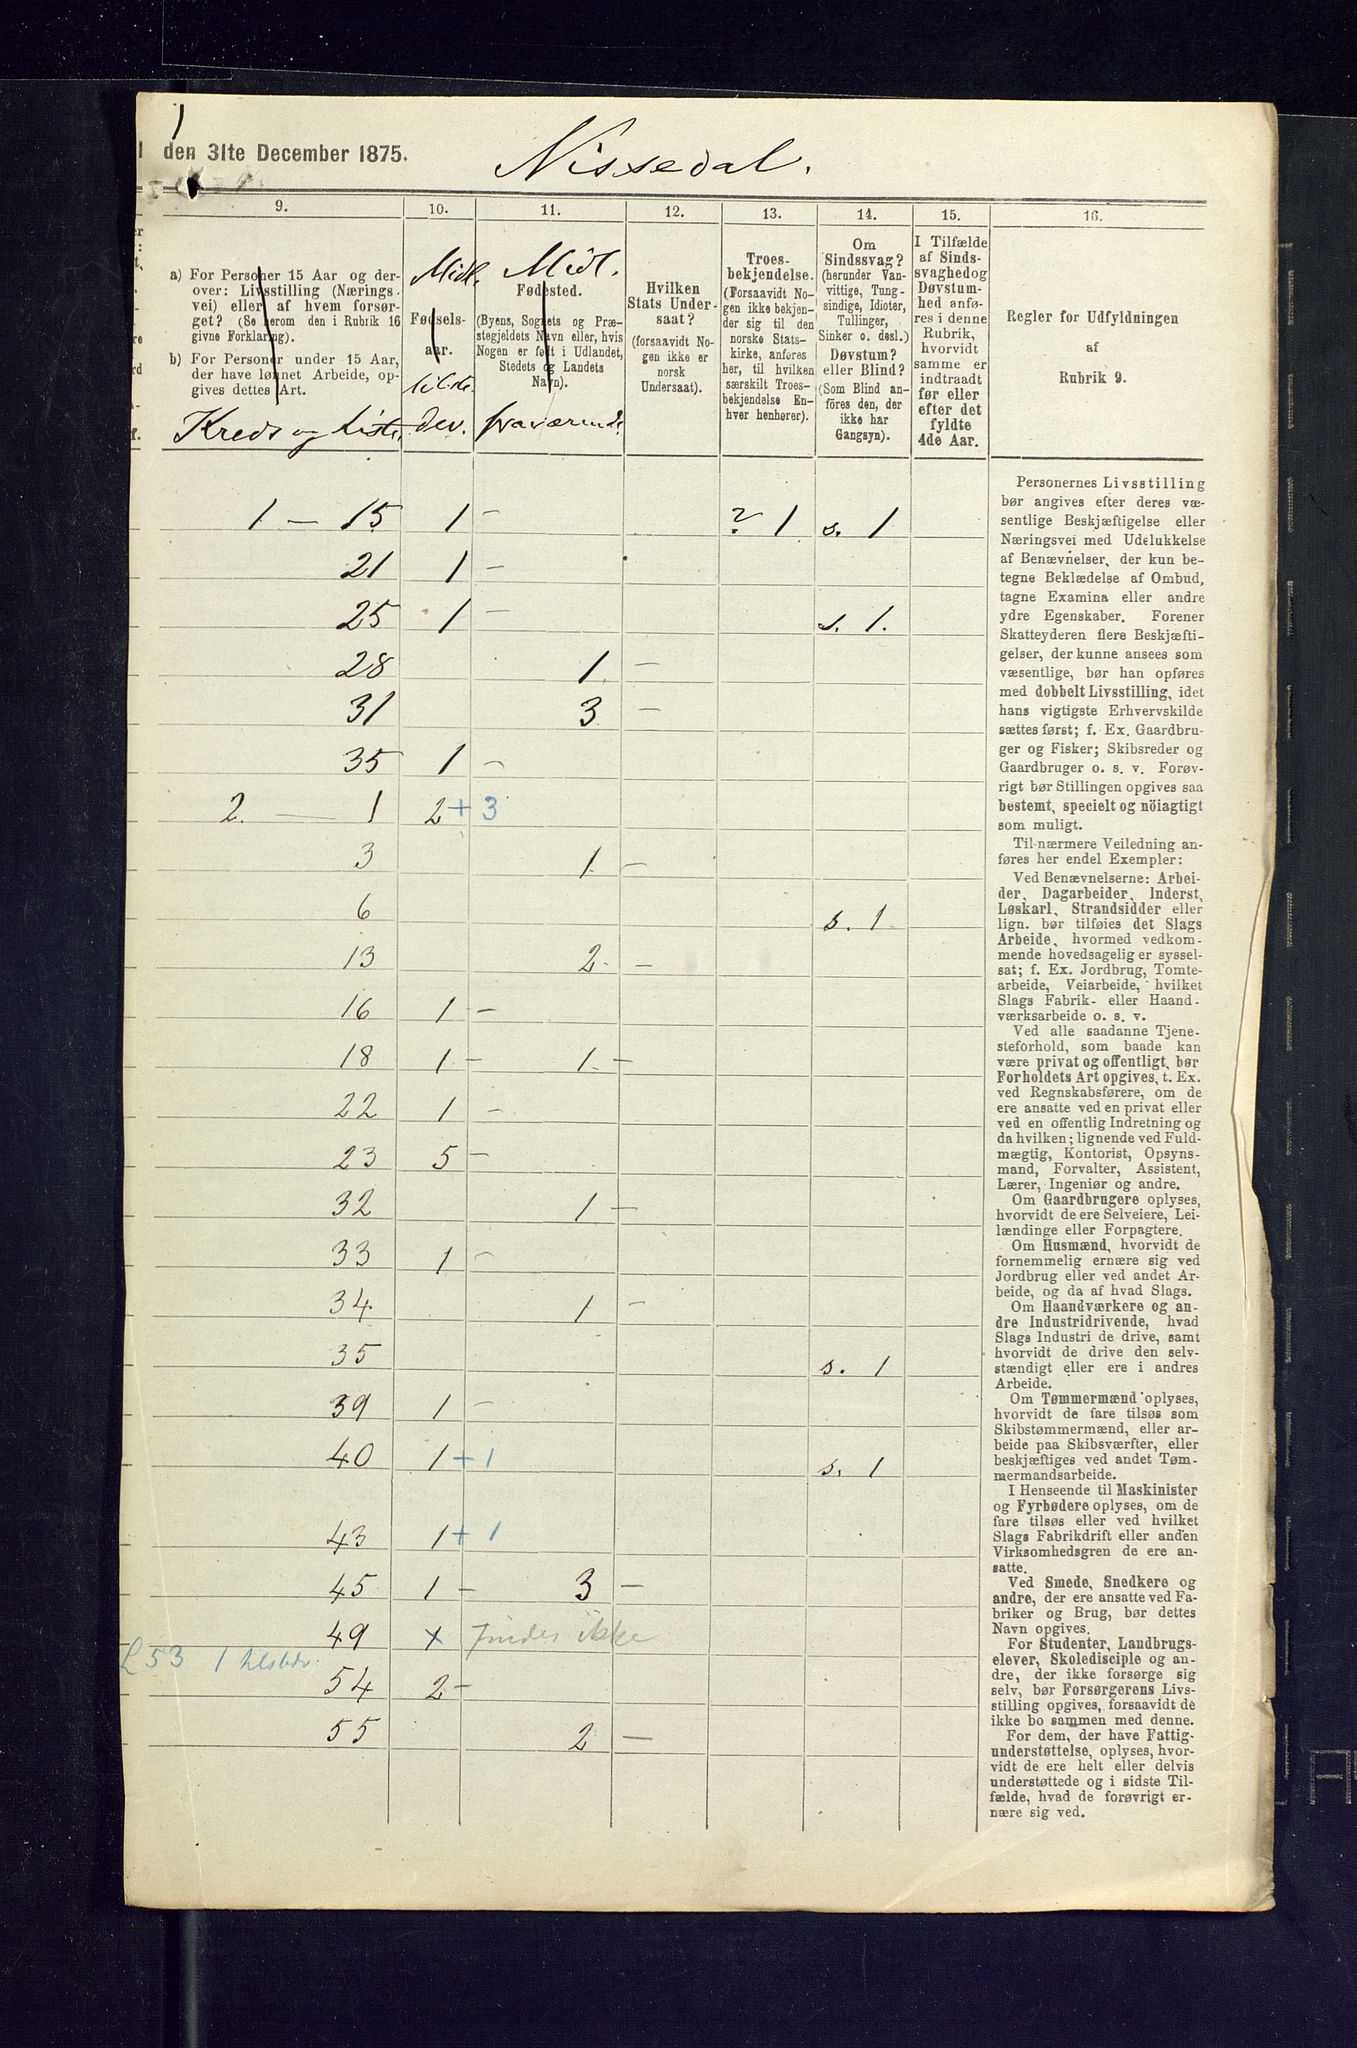 1
den 31te December 1875.
Nissedal.
9.
10.
11.
12.
13.
14.
15.
16.
a) For Personer 15 Aar og der-
over: Livsstilling (Nærings-
vei) eller af hvem forsør-
get? (Se herom den i Rubrik 16
givne Forklaring).
b) For Personer under 15 Aar,
der have lønnet Arbeide, op-
gives dettes Art.
Kreds og Liste.
Midl.
Fødsels-
aar.
tilste.
dev.
Midl.
Fødested.
(Byens, Sognets og Præ-
stegjeldets Navn eller, hvis
Nogen er født i Udlandet,
Stedets og Landets
Navn).
fraværende.
Hvilken
Stats Under-
saat?
(forsaavidt No-
gen ikke er
norsk
Undersaat).
Troes-
bekjendelse.
(Forsaavidt No-
gen ikke bekjen-
der sig til den
norske Stats-
kirke, anføres
her, til hvilken
særskilt Troes-
bekjendelse En-
hver henhører).
Om
Sindssvag?
(herunder Van-
vittige, Tung-
sindige, Idioter,
Tullinger,
Sinker o. desl.)
Døvstum?
eller Blind?
(Som Blind an-
føres den, der
ikke har
Gangsyn).
I Tilfælde
af Sinds-
svaghed og
Døvstum-
hed anfø-
res i denne
Rubrik,
hvorvidt
samme er
indtraadt
før eller
efter det
fyldte
4de Aar.
Regler for Udfyldningen
af
Rubrik 9.
1 — 15 1 — ? 1 s. 1
21 1 —
25 1 — s. 1.
28 1. —
31 3 —
35 1 —
2. — 1 2 + 3
3 1. —
6 s. 1
13 2. —
16 1 —
18 1 — 1. —
22 1 —
23 5 —
32 1 —
33 1 —
34 1 —
35 s. 1
39 1 —
40 1 + 1 s. 1
43 1 + 1
45 1 — 3 —
49 x findes ikke
L 53 1 tilstede
54 2 —
55 2 —
Personernes Livsstilling
bør angives efter deres væ-
sentlige Beskjæftigelse eller
Næringsvei med Udelukkelse
af Benævnelser, der kun be-
tegne Beklædelse af Ombud,
tagne Examina eller andre
ydre Egenskaber. Forener
Skatteyderen flere Beskjæfti-
gelser, der kunne ansees som
væsentlige, bør han opføres
med dobbelt Livsstilling, idet
hans vigtigste Erhvervskilde
sættes først; f. Ex. Gaardbru-
ger og Fisker; Skibsreder og
Gaardbruger o. s. v. Forøv-
rigt bør Stillingen opgives saa
bestemt, specielt og nöiagtigt
som muligt.
Til nærmere Veiledning an-
føres her endel Exempler:
Ved Benævnelserne: Arbei-
der, Dagarbeider, Inderst,
Løskarl, Strandsidder eller
lign. bør tilføies det Slags
Arbeide, hvormed vedkom-
mende hovedsagelig er syssel-
sat; f. Ex. Jordbrug, Tomte-
arbeide, Veiarbeide, hvilket
Slags Fabrik- eller Haand-
værksarbeide o. s. v.
Ved alle saadanne Tjene-
steforhold, som baade kan
være privat og offentligt, bør
Forholdets Art opgives, t. Ex.
ved Regnskabsførere, om de
ere ansatte ved en privat eller
ved en offentlig Indretning og
da hvilken; lignende ved Fuld-
mægtig, Kontorist, Opsyns-
mand, Forvalter, Assistent,
Lærer, Ingeniør og andre.
Om Gaardbrugere oplyses,
hvorvidt de ere Selveiere, Lei-
lændinge eller Forpagtere.
Om Husmænd, hvorvidt de
fornemmelig ernære sig ved
Jordbrug eller ved andet Ar-
beide, og da af hvad Slags.
Om Haandværkere og an-
dre Industridrivende, hvad
Slags Industri de drive, samt
hvorvidt de drive den selv-
stændigt eller ere i andres
Arbeide.
Om Tømmermænd oplyses,
hvorvidt de fare tilsøs som
Skibstømmermænd, eller ar-
beide paa Skibsværfter, eller
beskjæftiges ved andet Tøm-
mermandsarbeide.
I Henseende til Maskinister
og Fyrbødere oplyses, om de
fare tilsøs eller ved hvilket
Slags Fabrikdrift eller anden
Virksomhedsgren de ere an-
satte.
Ved Smede, Snedkere og
andre, der ere ansatte ved Fa-
briker og Brug, bør dettes
Navn opgives.
For Studenter, Landbrugs-
elever, Skoledisciple og an-
dre, der ikke forsørge sig
selv, bør Forsørgerens Livs-
stilling opgives, forsaavidt de
ikke bo sammen med denne.
For dem, der have Fattig-
understøttelse, oplyses, hvor-
vidt de ere helt eller delvis
understøttede og i sidste Til-
fælde, hvad de forøvrigt er-
nære sig ved.